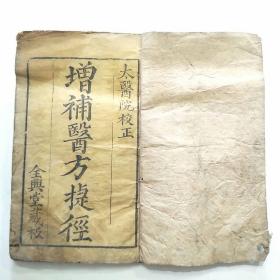 太醫院校正
增補醫方捷徑
全興堂藏板